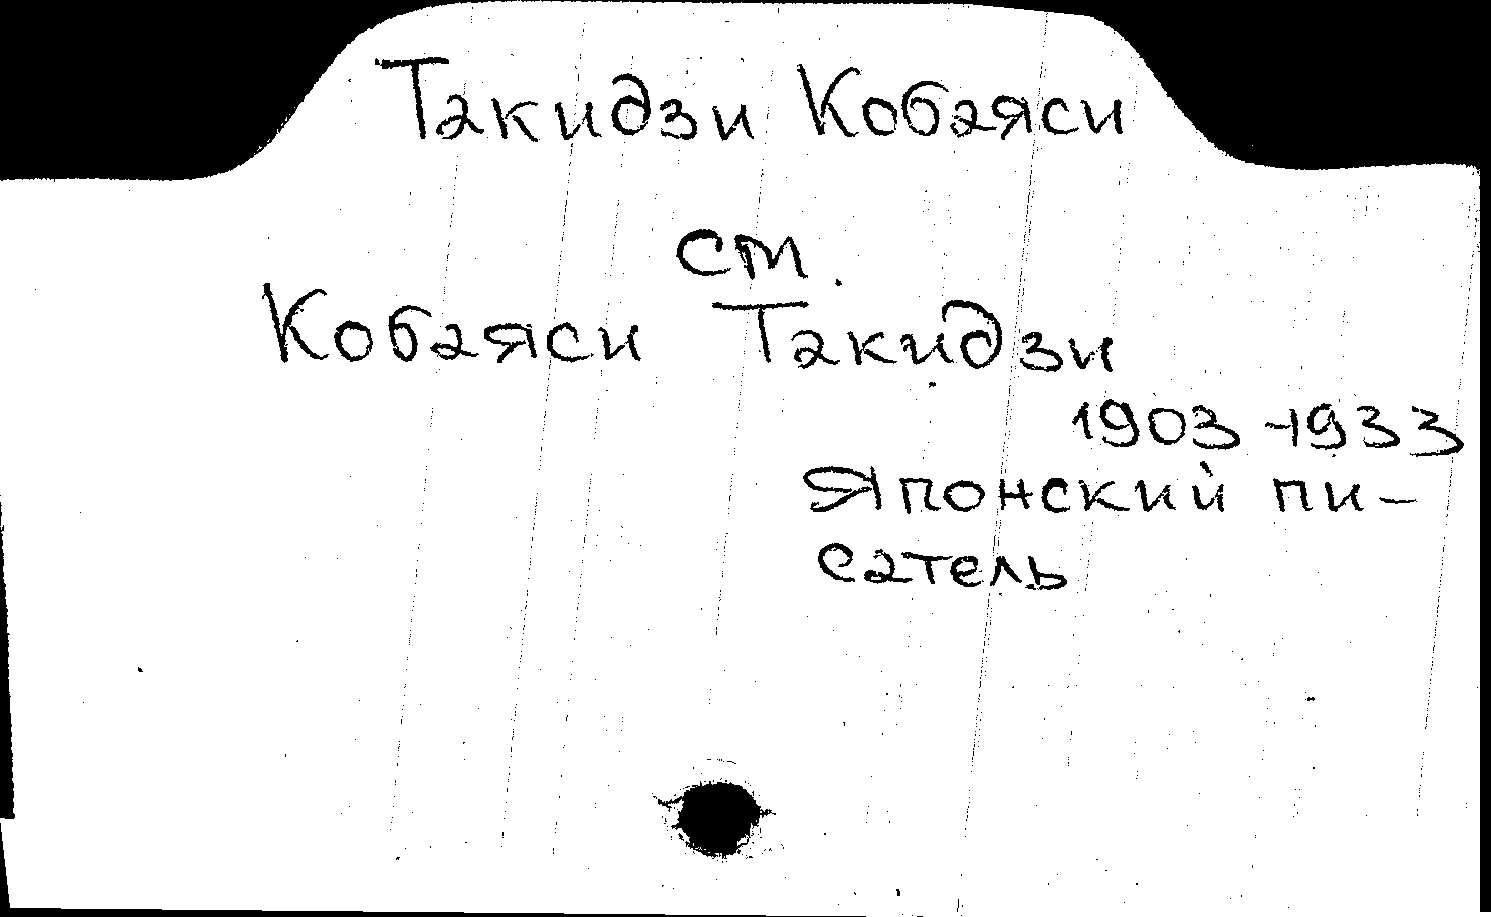 Такидзи Кобаяси
см.
Кобаяси Такидзи
1903-1933
Японский пи-
сатель